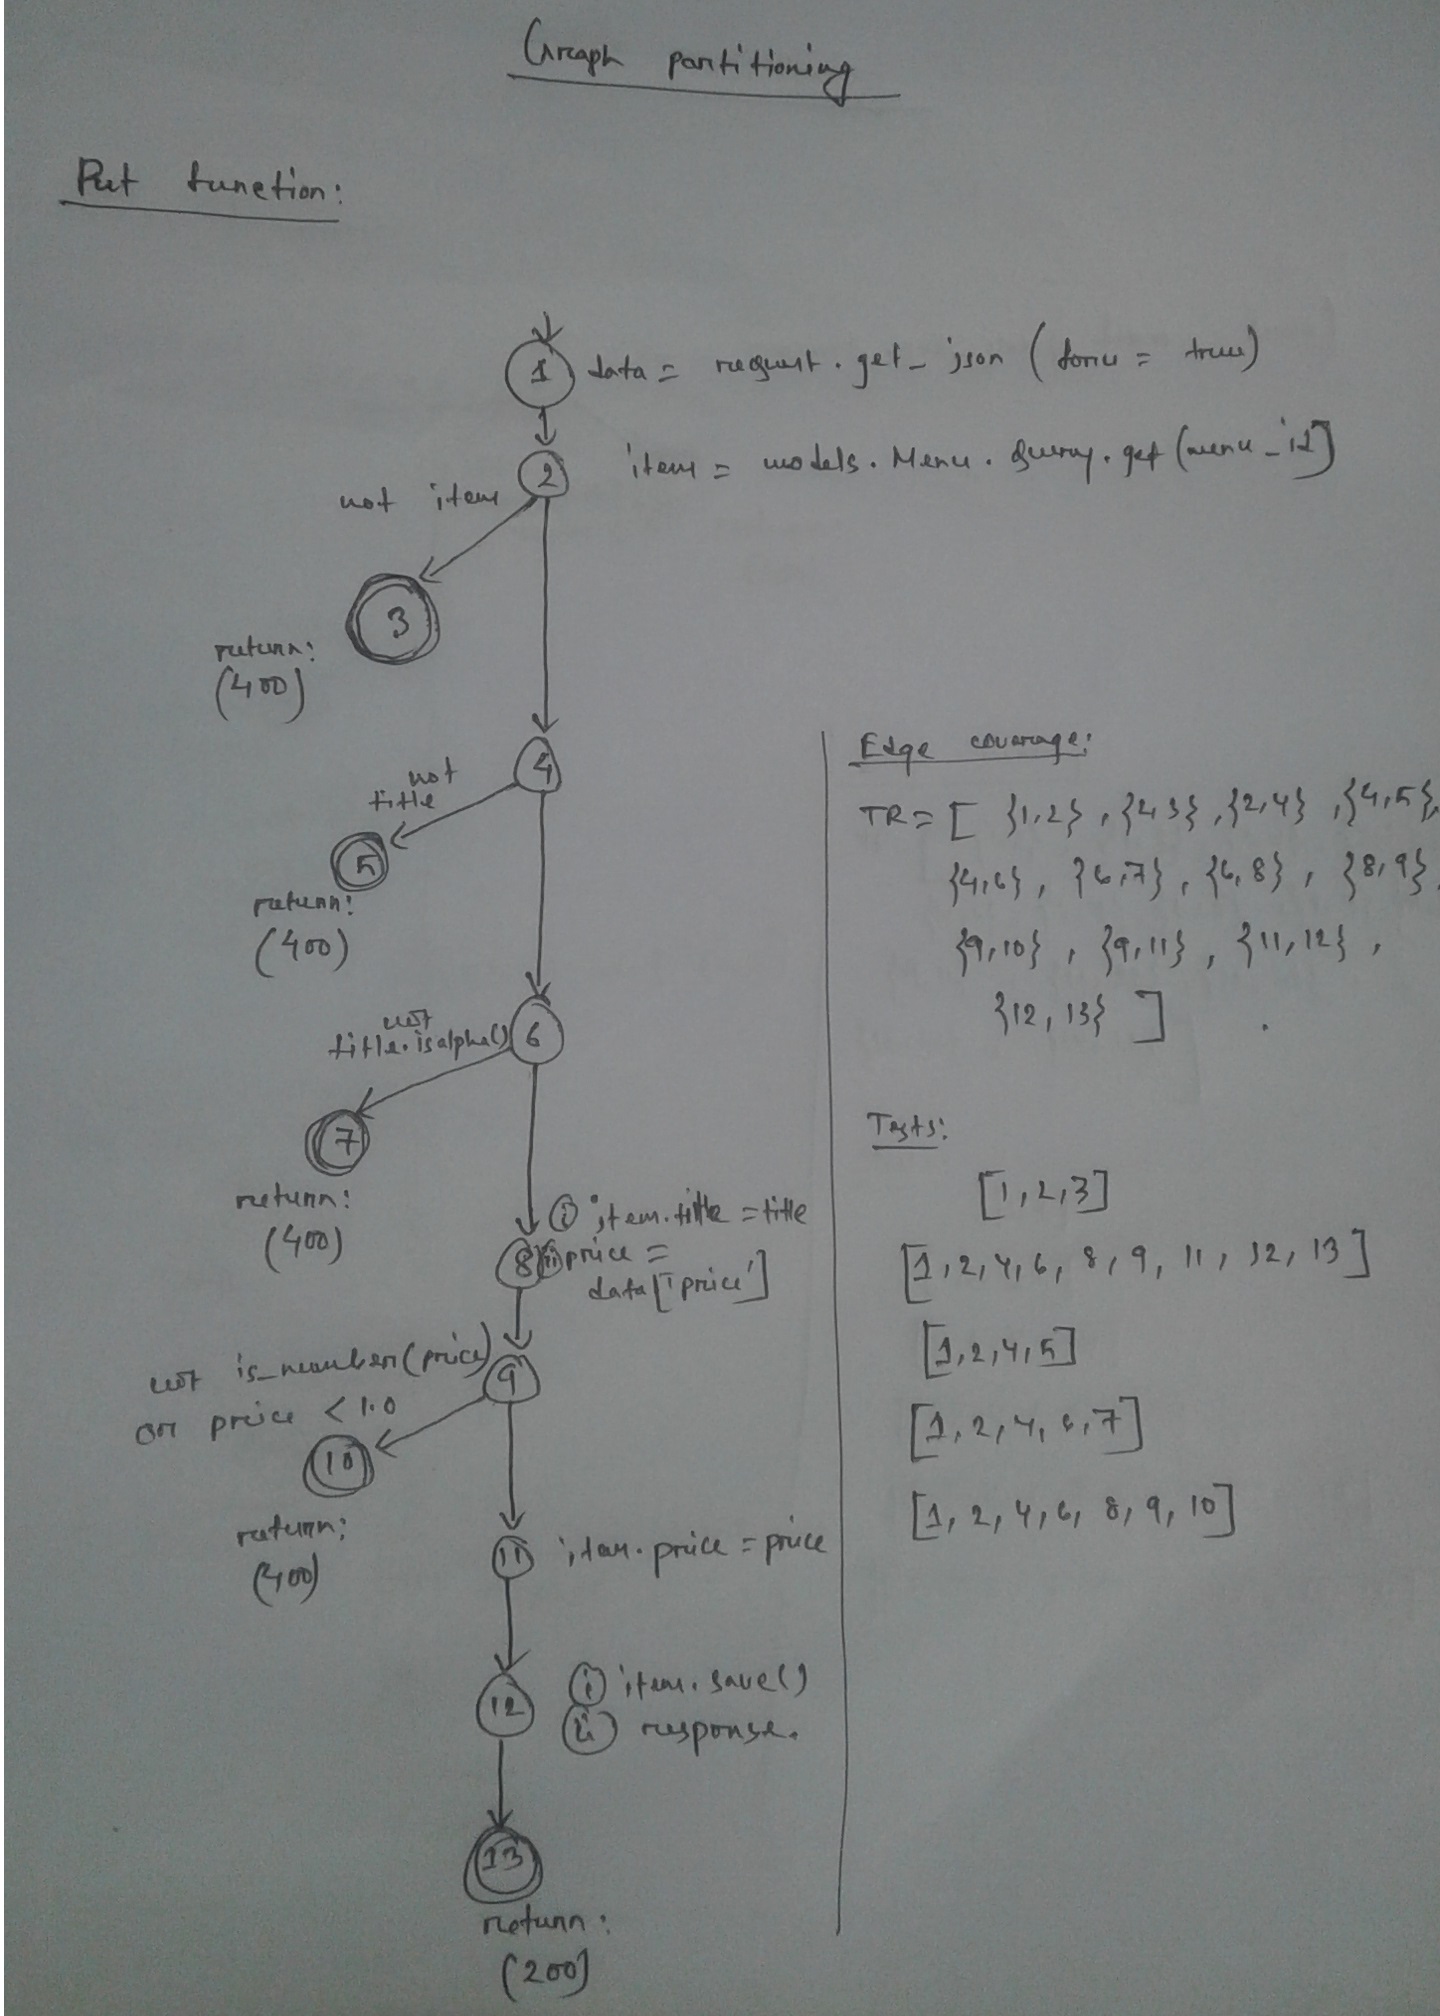 Graph partitioning
Put function:
1 data = request.get_json (force = true)
2 item = models.Menu.Query.get (menu_id]
not item
3
return:
(400)
4
not
title
5
return:
(400)
not
title.isalpha() 6
7
return:
(400)
8 (i) item.title = title
(ii) price =
data['price']
not is_number(price) 9
or price < 1.0
10
return:
(400)
11 item.price = price
12 (i) item.save()
(ii) response.
13
return:
(200)
Edge coverage:
TR = [ {1,2}, {2,3}, {2,4}, {4,5},
{4,6}, {6,7}, {6,8}, {8,9},
{9,10}, {9,11}, {11,12},
{12,13} ]
Tests:
[1,2,3]
[1,2,4,6,8,9,11,12,13]
[1,2,4,5]
[1,2,4,6,7]
[1,2,4,6,8,9,10]